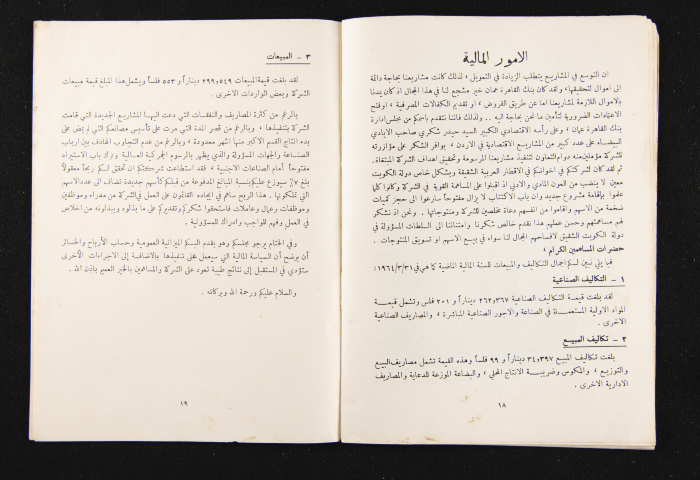 الامور المالية
ان التوسع في المشاريع يتطلب الزيادة في التمويل ، لذلك كانت مشاريعنا بحاجة دائمة
الى اموال لتحقيقها ، ولقد كان بنك القاهرة عمان خير مشجع لنا في هذا المجال اذ كان يمدنا
بالاموال اللازمة لمشاريعنا اما عن طريق القروض ، او تقديم الكفالات المصرفية ، او فتح
الاعتمادات الضرورية لتأمين ما نحن بحاجة اليه .. ولذلك فاننا نتقدم باسمكم من مجلس ادارة
بنك القاهرة عمان ، وعلى رأسه الاقتصادي الكبير السيد حيدر شكري صاحب الايادي
البيضاء على عدد كبير من المشاريع الاقتصادية في الاردن ، بوافر الشكر على مؤازرته
للشركة مؤملين منه دوام التعاون لتنفيذ مشاريعنا المرسومة وتحقيق اهداف الشركة المتبقاة.
ثم لقد كان لشركتكم في اخوانكم في الاقطار العربية الشقيقة وبشكل خاص دولة الكويت
معين لا ينضب من العون المادي والادبي اذ اقبلوا على المساهمة القوية في الشركة وكانوا كلما
عرفوا بإقامة مشروع جديد وان باب الاكتتاب لا يزال مفتوحاً سارعوا الى حجز كميات
ضخمة من الاسهم واقاموا من انفسهم دعاة مخلصين للشركة ومنتوجاتها . ونحن اذ نشكر
لهم مساهمتهم وحسن عملهم هذا نقدم خالص شكرنا وامتناننا الى السلطات المسؤولة في
دولة الكويت الشقيق لافساحهم المجال لنا سواء في بيع الاسهم او تسويق المنتوجات .
حضرات المساهمين الكرام ،
فيما يلي نبين لكم اجمال التكاليف والمبيعات للسنة المالية الماضية كما هي في ١٩٦٤/٣/٣١ :
١ - التكاليف الصناعية
لقد بلغت قيمة التكاليف الصناعية ٢٦٢٫٣٦٧ ديناراً و ٢٠١ فلس وتشمل قيمة
المواد الاولية المستعملة في الصناعة والاجور الصناعية المباشرة ، والمصاريف الصناعية
الاخرى .
٢ - تكاليف المبيع
بلغت تكاليف المبيع ٣٤٫٣٩٧ ديناراً و ٩٩ فلساً وهذه القيمة تشمل مصاريف البيع
والتوزيع ، والمكوس وضريبة الانتاج المحلي ، والبضاعة الموزعة للدعاية والمصاريف
الادارية الاخرى .
١٨
٣ - المبيعات
لقد بلغت قيمة المبيعات ٢٩٩٫٥٤٩ ديناراً و ٥٥٣ فلساً ويشمل هذا المبلغ قيمة مبيعات
الشركة وبعض الواردات الاخرى .
بالرغم من كثرة المصاريف والنفقات التي دعت اليها المشاريع الجديدة التي قامت
الشركة بتنفيذها ، وبالرغم من قصر المدة التي مرت على تأسيس مصانعكم التي لم يمض على
بدء انتاج القسم الاكبر منها اشهر معدودة ، وبالرغم من عدم التجاوب الهادف بين ارباب
الصناعة والجهات المسؤولة والذي يظهر بالرسوم الجمركية العالية وترك باب الاستيراد
مفتوحاً امام الصناعات الاجنبية ، فقد استطاعت شركتكم ان تحقق لكم ربحاً معقولاً
بلغ ٧٪ سيوزع عليكم بنسبة المبالغ المدفوعة من قبلكم كأسهم جديدة تضاف الى عدد الاسهم
التي تملكونها . هذا الربح ساهم في ايجاده القائمون على العمل في الشركة من مدراء وموظفين
وموظفات وعمال وعاملات فاستحقوا شكركم وتقديركم على ما بذلوه ويبذلونه من اخلاص
في العمل وفهم للواجب وادراك للمسؤولية .
وفي الختام يرجو مجلسكم وهو يقدم اليكم الميزانية العمومية وحساب الأرباح والخسائر
أن يوضح أن السياسة المالية التي سيعمل على تنفيذها بالاضافة إلى الاجراءات الأخرى
ستؤدي في المستقبل إلى نتائج طيبة تعود على الشركة والمساهمين بالخير العميم باذن الله .
والسلام عليكم ورحمة الله وبركاته .
١٩